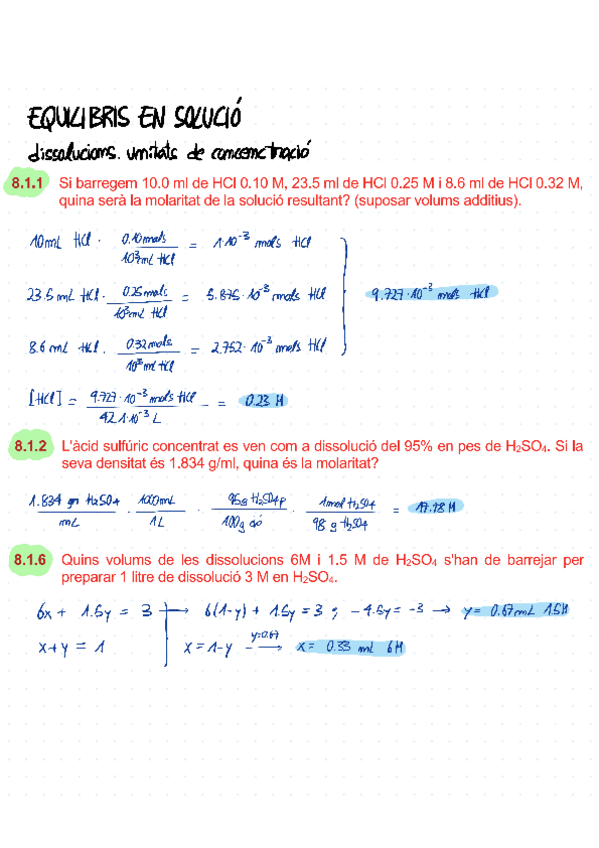 EQUILIBRIS EN SOLUCIÓ
dissolucions. unitats de concentració
8.1.1 Si barregem 10.0 ml de HCl 0.10 M, 23.5 ml de HCl 0.25 M i 8.6 ml de HCl 0.32 M,
quina serà la molaritat de la solució resultant? (suposar volums additius).
10mL HCl · 0.10mols / 10³mL HCl = 1·10⁻³ mols HCl
23.5 mL HCl · 0.25mols / 10³mL HCl = 5.875·10⁻³ mols HCl
9.727·10⁻³ mols HCl
8.6 mL HCl · 0.32mols / 10³mL HCl = 2.752·10⁻³ mols HCl
[HCl] = 9.727·10⁻³ mols HCl / 42.1·10⁻³ L = 0.23 M
8.1.2 L'àcid sulfúric concentrat es ven com a dissolució del 95% en pes de H₂SO₄. Si la
seva densitat és 1.834 g/ml, quina és la molaritat?
1.834 gr H₂SO₄ / mL · 1000mL / 1L · 95g H₂SO₄ p / 100g dó · 1mol H₂SO₄ / 98 g H₂SO₄ = 17.78 M
8.1.6 Quins volums de les dissolucions 6M i 1.5 M de H₂SO₄ s'han de barrejar per
preparar 1 litre de dissolució 3 M en H₂SO₄.
6x + 1.5y = 3 → 6(1-y) + 1.5y = 3 ; -4.5y = -3 → y = 0.67 mL 1.5M
x+y = 1 x = 1-y y=0.67 → x = 0.33 mL 6M